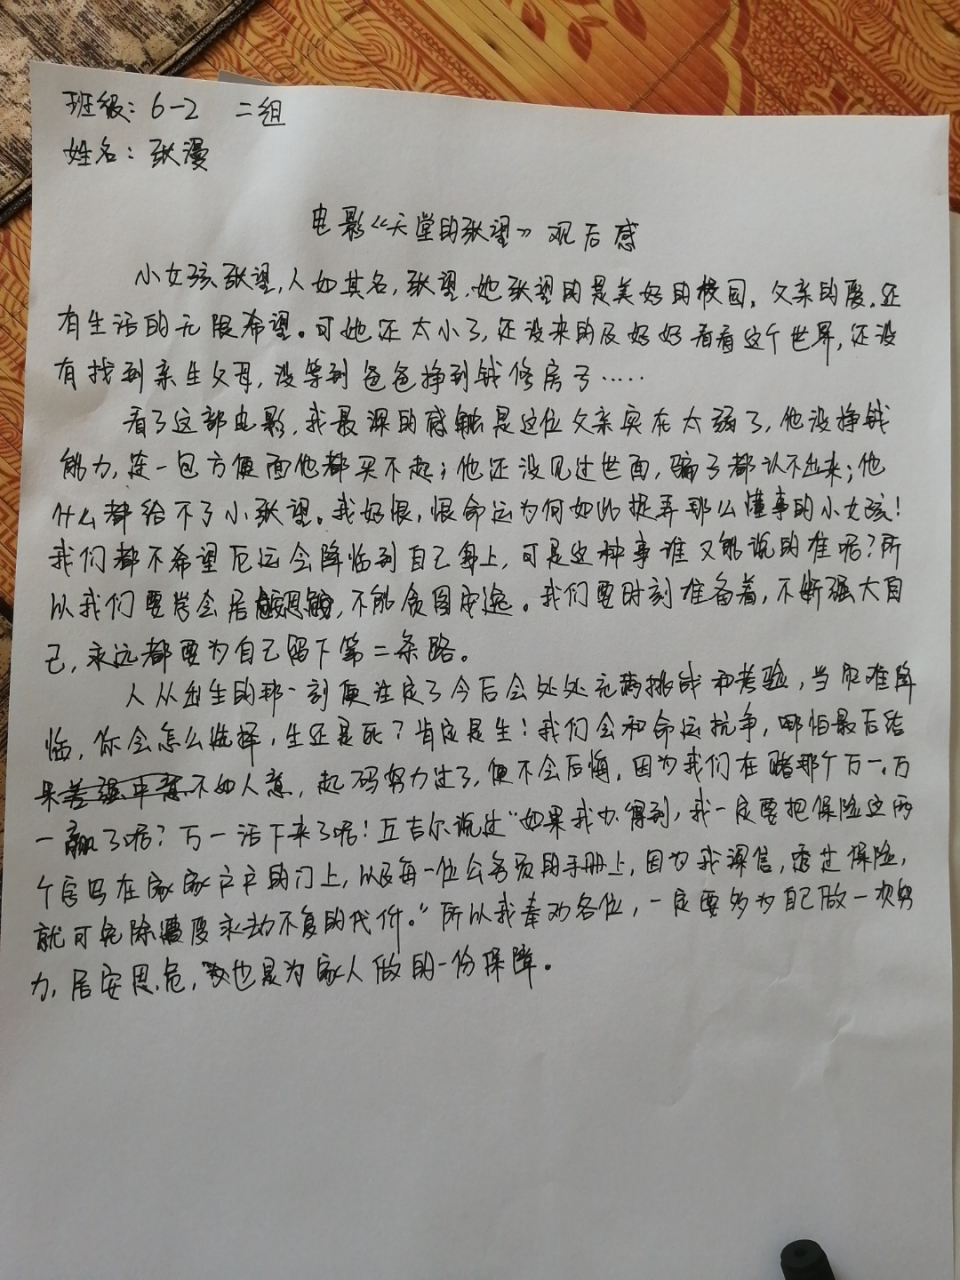 班级：6-2 二组
姓名：张漫
电影《天堂的张望》观后感
小女孩张望，人如其名，张望，她张望的是美好的校园，父亲的爱，还
有生活的无限希望。可她还太小了，还没来的及好好看看这个世界，还没
有找到亲生父母，没等到爸爸挣到钱修房子……
看了这部电影，我最深的感触是这位父亲实在太弱了，他没挣钱
能力，连一包方便面他都买不起；他还没见过世面，骗子都认不出来；他
什么都给不了小张望。我好恨，恨命运为何如此捉弄那么懂事的小女孩！
我们都不希望厄运会降临到自己身上，可是这种事谁又能说的准呢？所
以我们要学会居，不能贪图安逸。我们要时刻准备着，不断强大自
己，永远都要为自己留下第二条路。
人从出生的那一刻便注定了今后会处处充满挑战和考验，当灾难降
临，你会怎么选择，生还是死？肯定是生！我们会和命运抗争，哪怕最后结
果不如人意，起码努力过了，便不会后悔，因为我们在赌那个万一，万
一赢了呢？万一活下来了呢！丘吉尔说过“如果我办得到，我一定要把保险这两
个字写在家家户户的门上，以及每一位公务员的手册上，因为我深信，透过保险，
就可免除遭受永劫不复的代价。”所以我奉劝各位，一定要多为自己做一次努
力，居安思危，也是为家人做的一份保障。